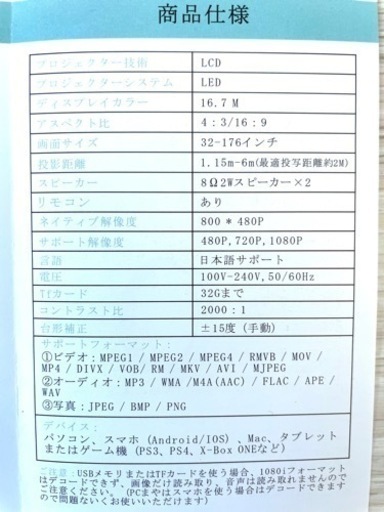 商品仕様
プロジェクター技術 LCD
プロジェクターシステム LED
ディスプレイカラー 16.7 M
アスペクト比 4：3/16：9
画面サイズ 32-176インチ
投影距離 1.15m-6m(最適投写距離約2M)
スピーカー 8Ω2Wスピーカー×2
リモコン あり
ネイティブ解像度 800 * 480P
サポート解像度 480P,720P,1080P
言語 日本語サポート
電圧 100V-240V,50/60Hz
Tfカード 32Gまで
コントラスト比 2000：1
台形補正 ±15度（手動）
サポートフォーマット：
①ビデオ：MPEG1 / MPEG2 / MPEG4 / RMVB / MOV /
MP4 / DIVX / VOB/ RM / MKV / AVI / MJPEG
②オーディオ：MP3 / WMA /M4A(AAC) / FLAC / APE /
WAV
③写真：JPEG / BMP / PNG
デバイス：
パソコン、スマホ（Android/IOS）、Mac、タブレット
またはゲーム機（PS3、PS4、X-Box ONEなど）
ご注意：USBメモリまたはTFカードを使う場合、1080iフォーマット
はデコードできず、画像だけ読み取り，音声は読み取れませんので
ご注意ください。（PCまやはスマホを使う場合はデコードできます
ので問題ないくお使いいただけます）